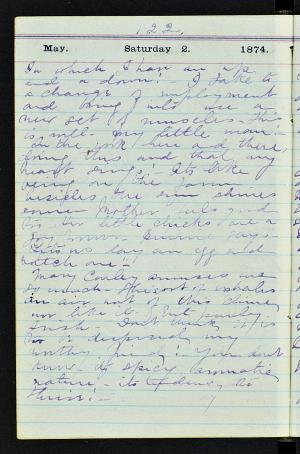 122.
May. Saturday 2. 1874.
In which I have an up
and a down! - I take to
a change of employment
and bring into use a
new set of muscles - This
is well. My little man -
on the here and there,
doing this and that, my
heart sings; - It's like
being on the farm -
the sun shines
Mother
for her little chicks and a
days -
lay an egg and
hatch one -
Mary amuses me
so much - She sort of exhales
an air not of this clime,
nor like it, but purely
Irish - Don't think it's
to be despised my
worthy friend! - You don't
know its spicy aromatic
nature - its
this! -